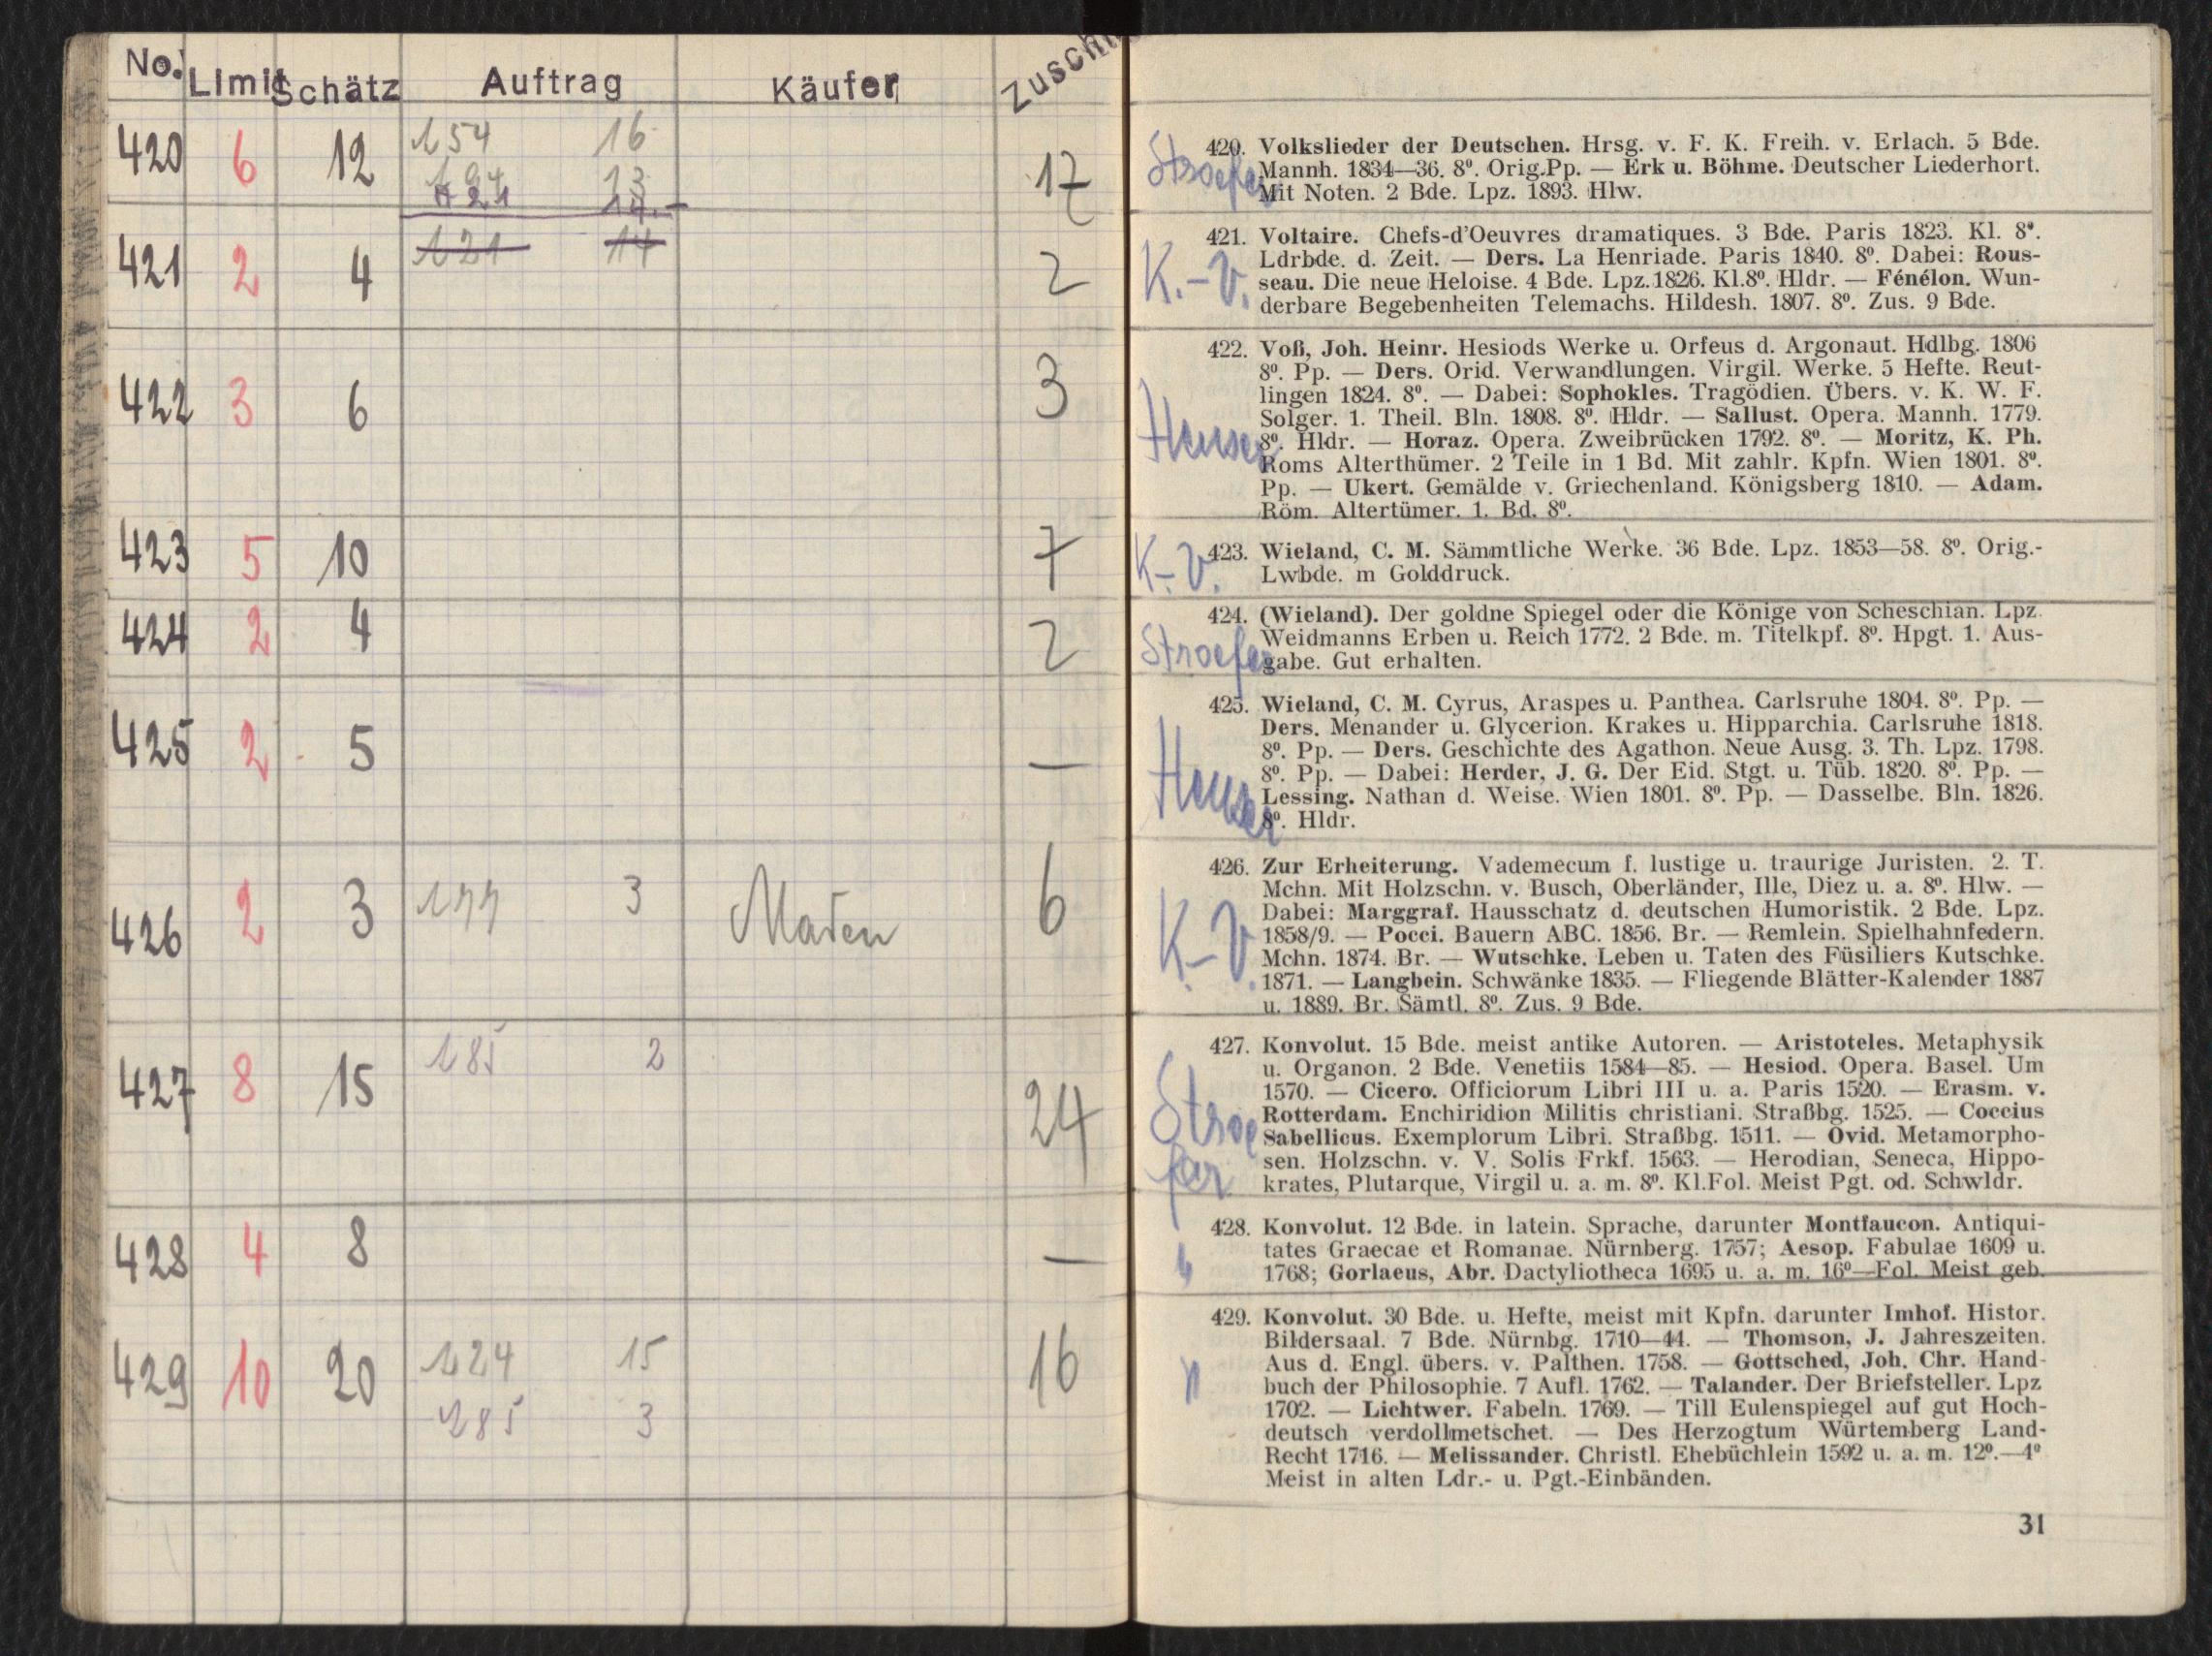 No. Limit Schätz Auftrag Käufer
420 6 12 154 16 17
121 14.-
421 2 4 121 14 2
422 3 6 3
423 5 10 7
424 2 4 2
425 2 5 —
426 2 3 177 3 6
427 8 15 185 2 24
428 4 8 —
429 10 20 124 15 16
185 3
Stroefer
420. Volkslieder der Deutschen. Hrsg. v. F. K. Freih. v. Erlach. 5 Bde.
Mannh. 1834—36. 8⁰. Orig.Pp. — Erk u. Böhme. Deutscher Liederhort.
Mit Noten. 2 Bde. Lpz. 1893. Hlw.
K.-V.
421. Voltaire. Chefs-d'Oeuvres dramatiques. 3 Bde. Paris 1823. Kl. 8⁰.
Ldrbde. d. Zeit. — Ders. La Henriade. Paris 1840. 8⁰. Dabei: Rous-
seau. Die neue Heloise. 4 Bde. Lpz.1826. Kl.8⁰. Hldr. — Fénélon. Wun-
derbare Begebenheiten Telemachs. Hildesh. 1807. 8⁰. Zus. 9 Bde.
Heuser
422. Voß, Joh. Heinr. Hesiods Werke u. Orfeus d. Argonaut. Hdlbg. 1806
8⁰. Pp. — Ders. Orid. Verwandlungen. Virgil. Werke. 5 Hefte. Reut-
lingen 1824. 8⁰. — Dabei: Sophokles. Tragödien. Übers. v. K. W. F.
Solger. 1. Theil. Bln. 1808. 8⁰. Hldr. — Sallust. Opera. Mannh. 1779.
8⁰. Hldr. — Horaz. Opera. Zweibrücken 1792. 8⁰. — Moritz, K. Ph.
Roms Alterthümer. 2 Teile in 1 Bd. Mit zahlr. Kpfn. Wien 1801. 8⁰.
Pp. — Ukert. Gemälde v. Griechenland. Königsberg 1810. — Adam.
Röm. Altertümer. 1. Bd. 8⁰.
K.-V.
423. Wieland, C. M. Sämmtliche Werke. 36 Bde. Lpz. 1853—58. 8⁰. Orig.-
Lwbde. m Golddruck.
Stroefer
424. (Wieland). Der goldne Spiegel oder die Könige von Scheschian. Lpz.
Weidmanns Erben u. Reich 1772. 2 Bde. m. Titelkpf. 8⁰. Hpgt. 1. Aus-
gabe. Gut erhalten.
Heuser
425. Wieland, C. M. Cyrus, Araspes u. Panthea. Carlsruhe 1804. 8⁰. Pp. —
Ders. Menander u. Glycerion. Krakes u. Hipparchia. Carlsruhe 1818.
8⁰. Pp. — Ders. Geschichte des Agathon. Neue Ausg. 3. Th. Lpz. 1798.
8⁰. Pp. — Dabei: Herder, J. G. Der Eid. Stgt. u. Tüb. 1820. 8⁰. Pp. —
Lessing. Nathan d. Weise. Wien 1801. 8⁰. Pp. — Dasselbe. Bln. 1826.
8⁰. Hldr.
K.-V.
426. Zur Erheiterung. Vademecum f. lustige u. traurige Juristen. 2. T.
Mchn. Mit Holzschn. v. Busch, Oberländer, Ille, Diez u. a. 8⁰. Hlw. —
Dabei: Marggraf. Hausschatz d. deutschen Humoristik. 2 Bde. Lpz.
1858/9. — Pocci. Bauern ABC. 1856. Br. — Remlein. Spielhahnfedern.
Mchn. 1874. Br. — Wutschke. Leben u. Taten des Füsiliers Kutschke.
1871. — Langbein. Schwänke 1835. — Fliegende Blätter-Kalender 1887
u. 1889. Br. Sämtl. 8⁰. Zus. 9 Bde.
Stroefer
427. Konvolut. 15 Bde. meist antike Autoren. — Aristoteles. Metaphysik
u. Organon. 2 Bde. Venetiis 1584—85. — Hesiod. Opera. Basel. Um
1570. — Cicero. Officiorum Libri III u. a. Paris 1520. — Erasm. v.
Rotterdam. Enchiridion Militis christiani. Straßbg. 1525. — Coccius
Sabellicus. Exemplorum Libri. Straßbg. 1511. — Ovid. Metamorpho-
sen. Holzschn. v. V. Solis Frkf. 1563. — Herodian, Seneca, Hippo-
krates, Plutarque, Virgil u. a. m. 8⁰. Kl.Fol. Meist Pgt. od. Schwldr.
428. Konvolut. 12 Bde. in latein. Sprache, darunter Montfaucon. Antiqui-
tates Graecae et Romanae. Nürnberg. 1757; Aesop. Fabulae 1609 u.
1768; Gorlaeus, Abr. Dactyliotheca 1695 u. a. m. 16⁰—Fol. Meist geb.
429. Konvolut. 30 Bde. u. Hefte, meist mit Kpfn. darunter Imhof. Histor.
Bildersaal. 7 Bde. Nürnbg. 1710—44. — Thomson, J. Jahreszeiten.
Aus d. Engl. übers. v. Palthen. 1758. — Gottsched, Joh. Chr. Hand-
buch der Philosophie. 7 Aufl. 1762. — Talander. Der Briefsteller. Lpz
1702. — Lichtwer. Fabeln. 1769. — Till Eulenspiegel auf gut Hoch-
deutsch verdollmetschet. — Des Herzogtum Würtemberg Land-
Recht 1716. — Melissander. Christl. Ehebüchlein 1592 u. a. m. 12⁰.—4⁰
Meist in alten Ldr.- u. Pgt.-Einbänden.
31